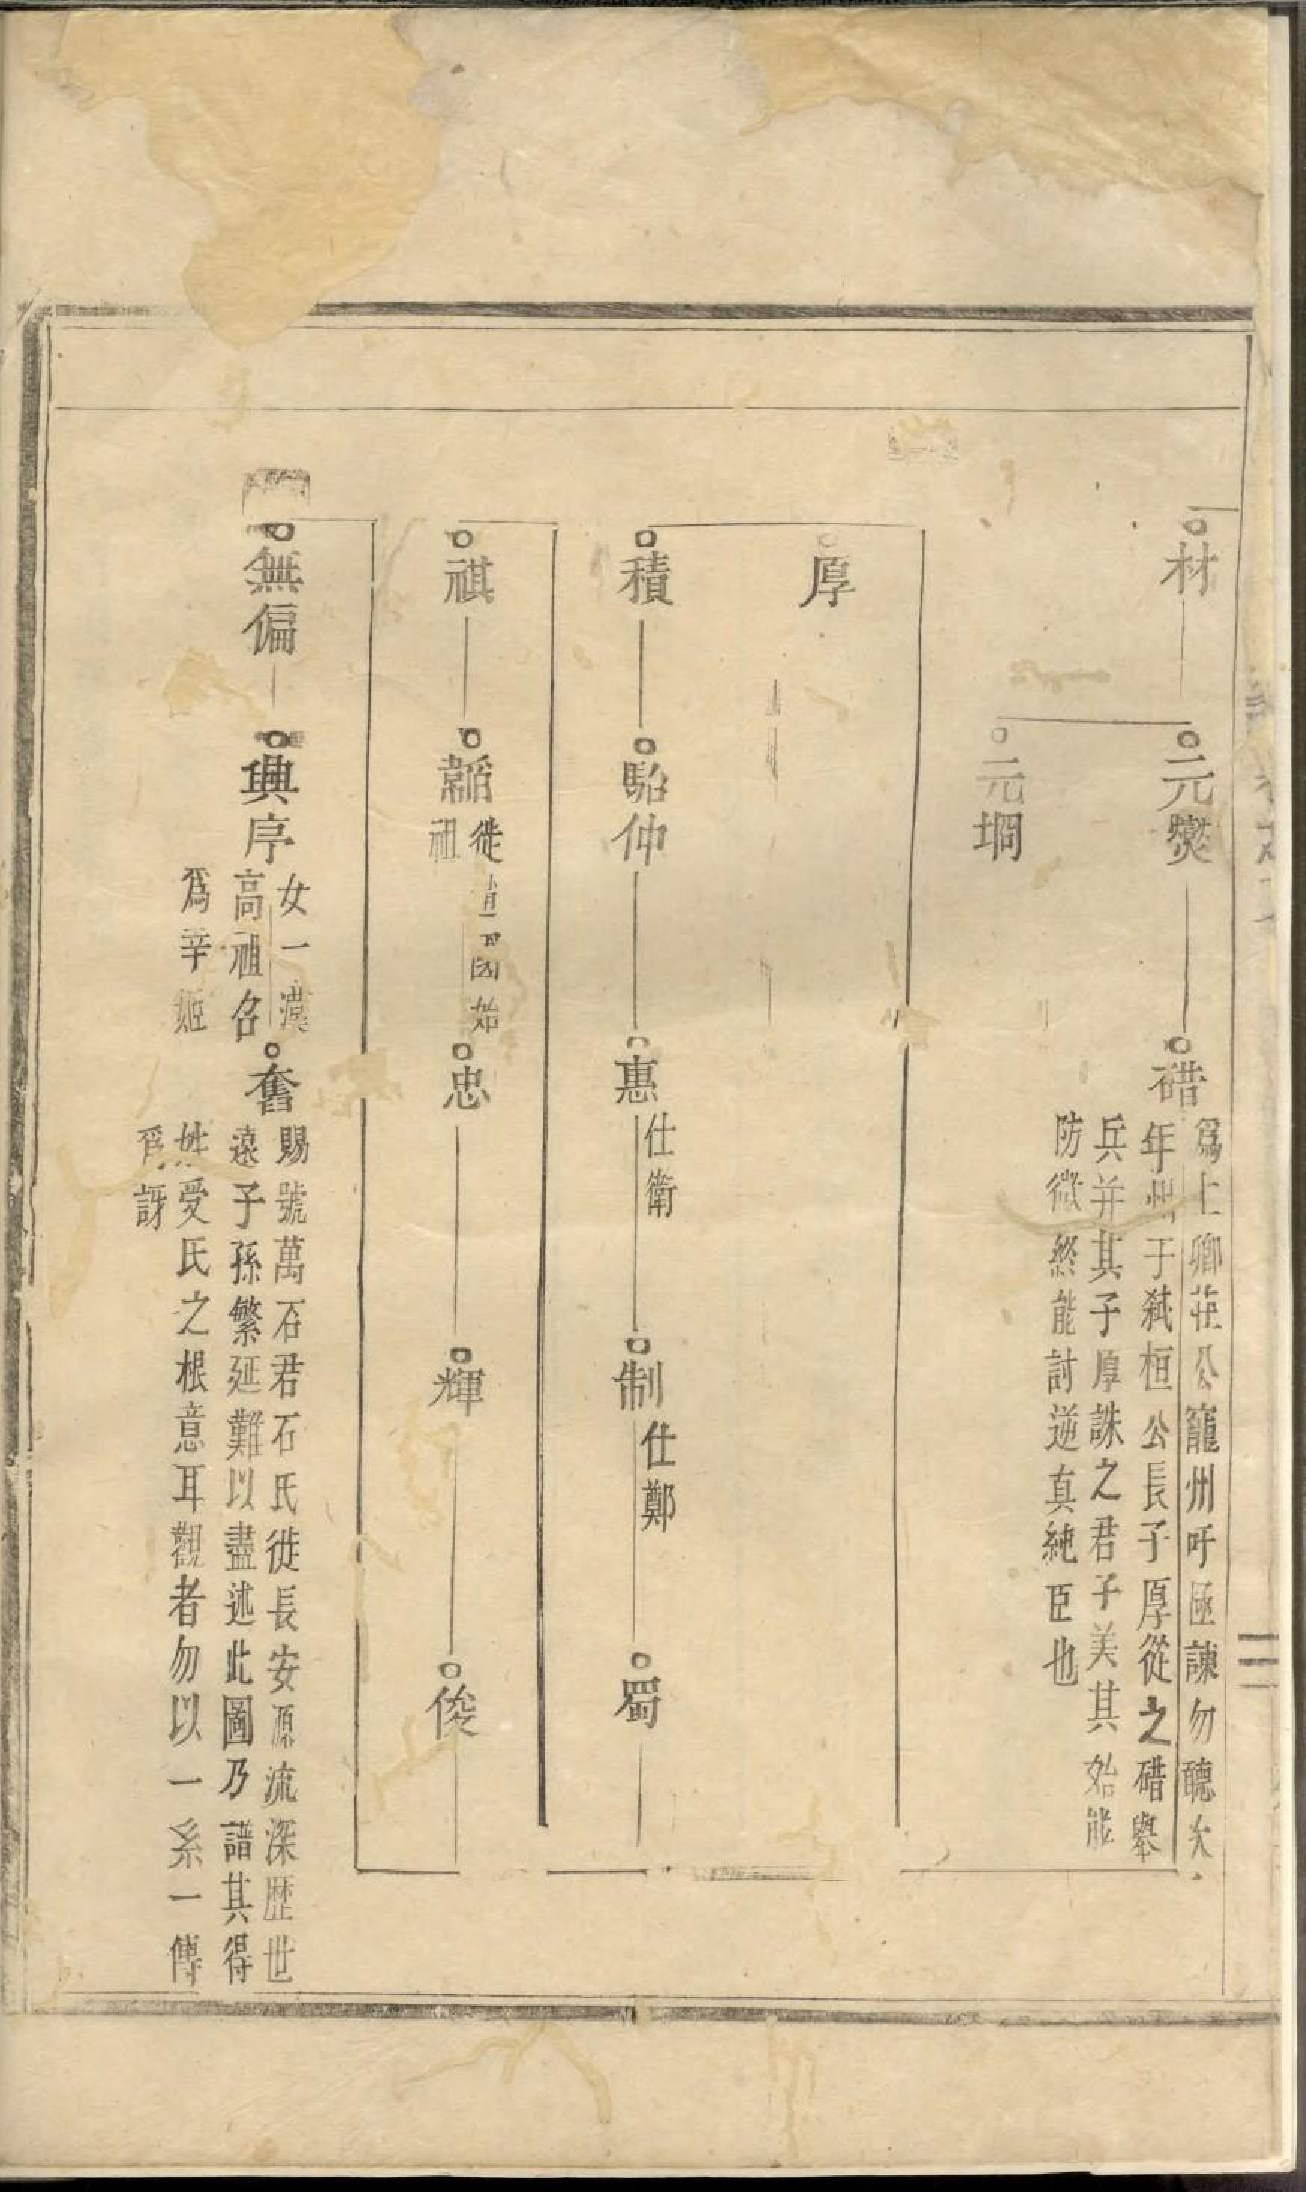 材
元爕
元堈
碏
爲上卿莊公寵州吁亟諫勿聽
年州于弑桓公長子厚從之碏舉
兵并其子厚誅之君子美其始能
防微終能討逆真純臣也
厚
積
駘仲
惠
仕衛
制
仕鄭
蜀
祺
韜
徙國始
祖
忠
輝
俊
無偏
興序
女一漢
高祖名
爲辛姬
奮
賜號萬石君石氏徙長安源流深歴世
遠子孫繁延難以盡述此圖乃譜其得
姓受氏之根意耳觀者勿以一系一傳
爲訝